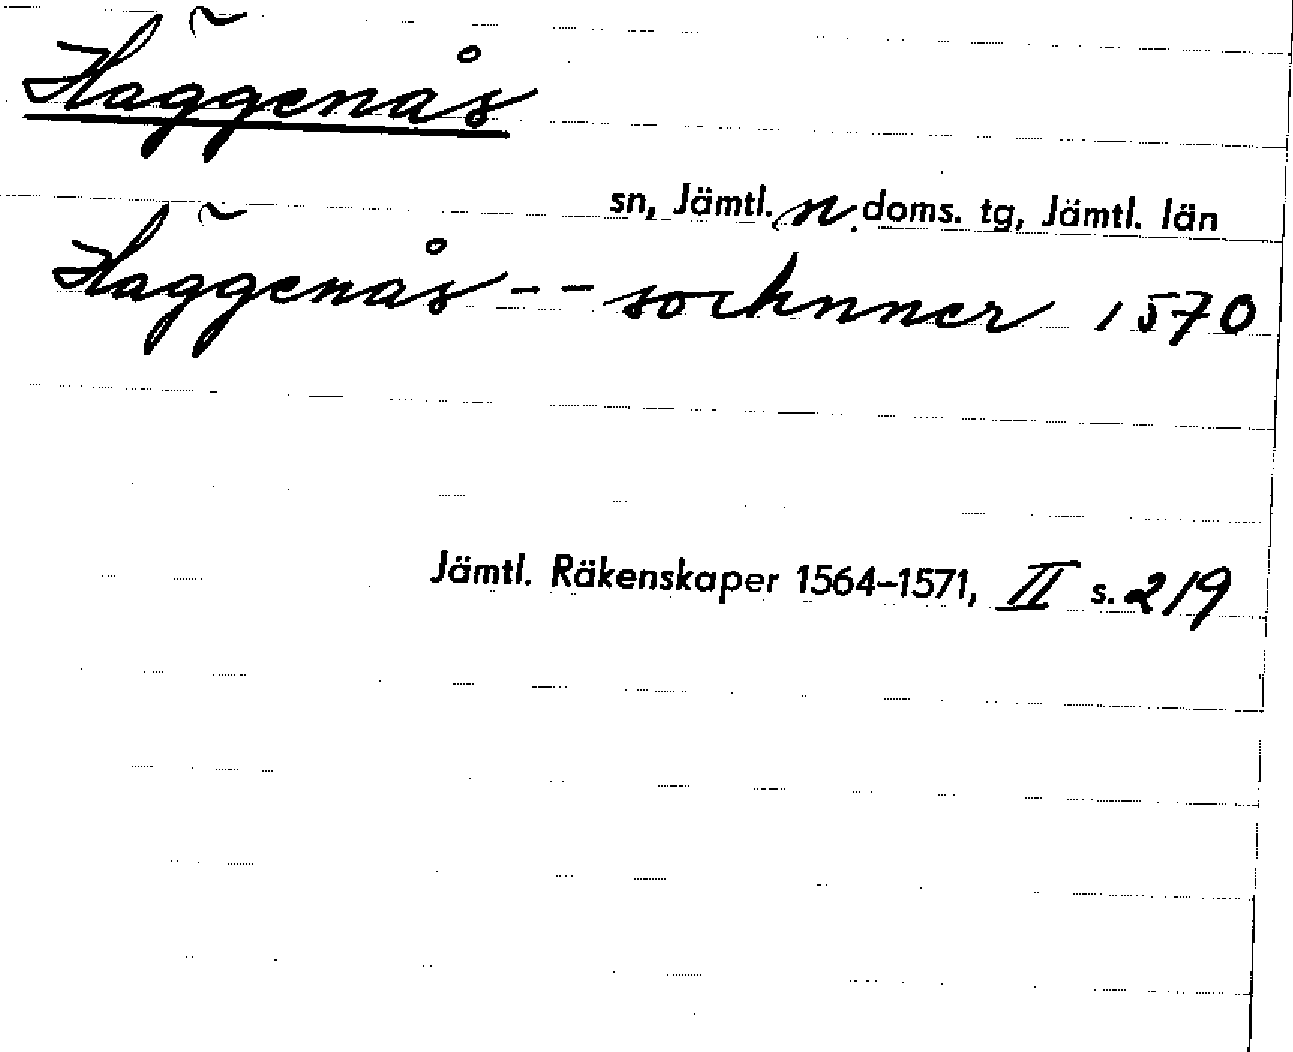 Häggenås
sn, Jämtl. n. doms. tg, Jämtl. län
Häggenås -- sochnner 1570
Jämtl. Räkenskaper 1564-1571, II s. 219